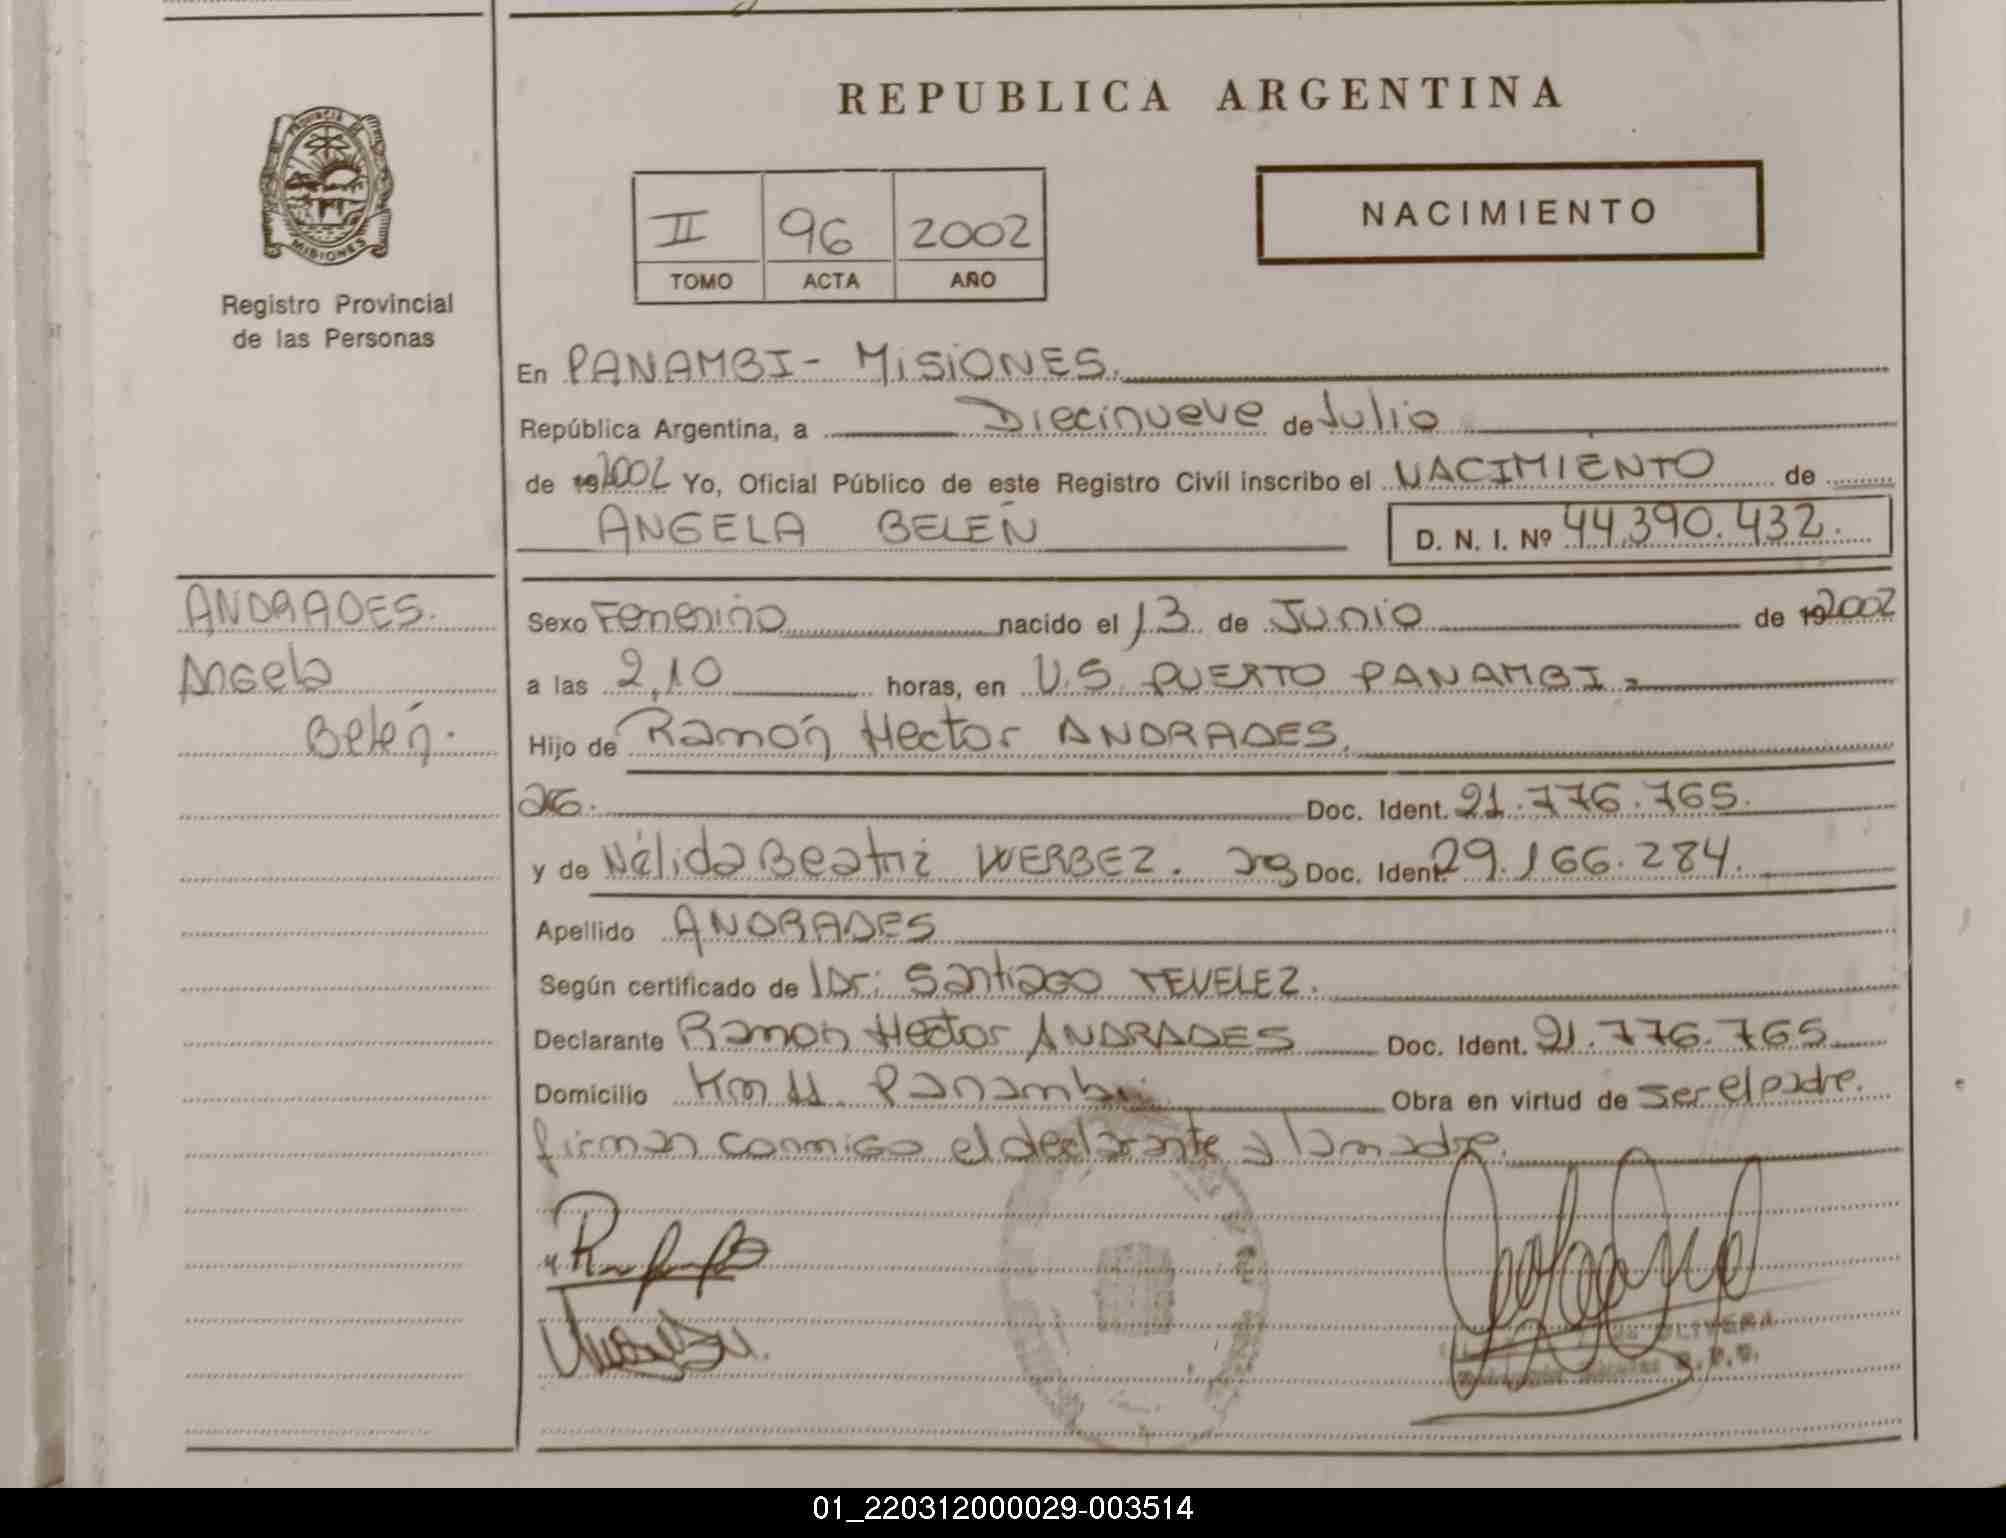 REPUBLICA ARGENTINA
PROVINCIA DE
MISIONES
Registro Provincial
de las Personas
II 96 2002
TOMO ACTA AÑO
NACIMIENTO
En PANAMBI - MISIONES.
República Argentina, a Diecinueve de Julio
de 192002 Yo, Oficial Público de este Registro Civil inscribo el NACIMIENTO de
ANGELA BELEN D. N. I. Nº 44.390.432.
ANDRADES.
Angela
Belén.
Sexo Femenino nacido el 13 de Junio de 192002
a las 2,10 horas, en U.S. PUERTO PANAMBI.
Hijo de Ramón Hector ANDRADES.
Doc. Ident. 21.776.765.
y de Nélida Beatriz WERBEZ. Doc. Ident. 29.166.284.
Apellido ANDRADES
Según certificado de Dr: Santiago TEVELEZ.
Declarante Ramon Hector ANDRADES Doc. Ident. 21.776.765
Domicilio Km 11 Panambi Obra en virtud de ser el padre.
firman conmigo el declarante y la madre.
OLIVERA
01_220312000029-003514